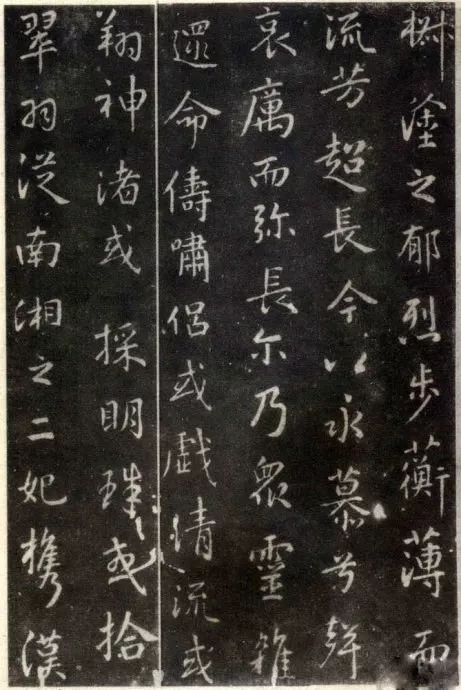 椒塗之郁烈步蘅薄而
流芳超長今以永慕兮聲
哀厲而弥長尔乃衆靈雜
遝命儔嘯侶或戲清流或
翔神渚或採明珠或拾
翠羽從南湘之二妃攜漢